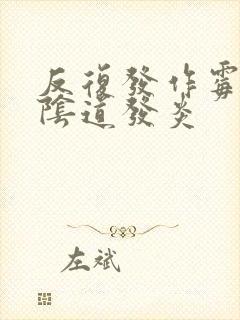 反復發作霉
陰道發炎
左斌